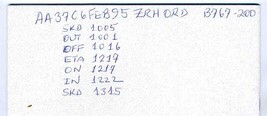 AA37C6FEB95 ZRH ORD B767-200
SKD 1005
OUT 1001
OFF 1016
ETA 1219
ON 1217
IN 1222
SKD 1315